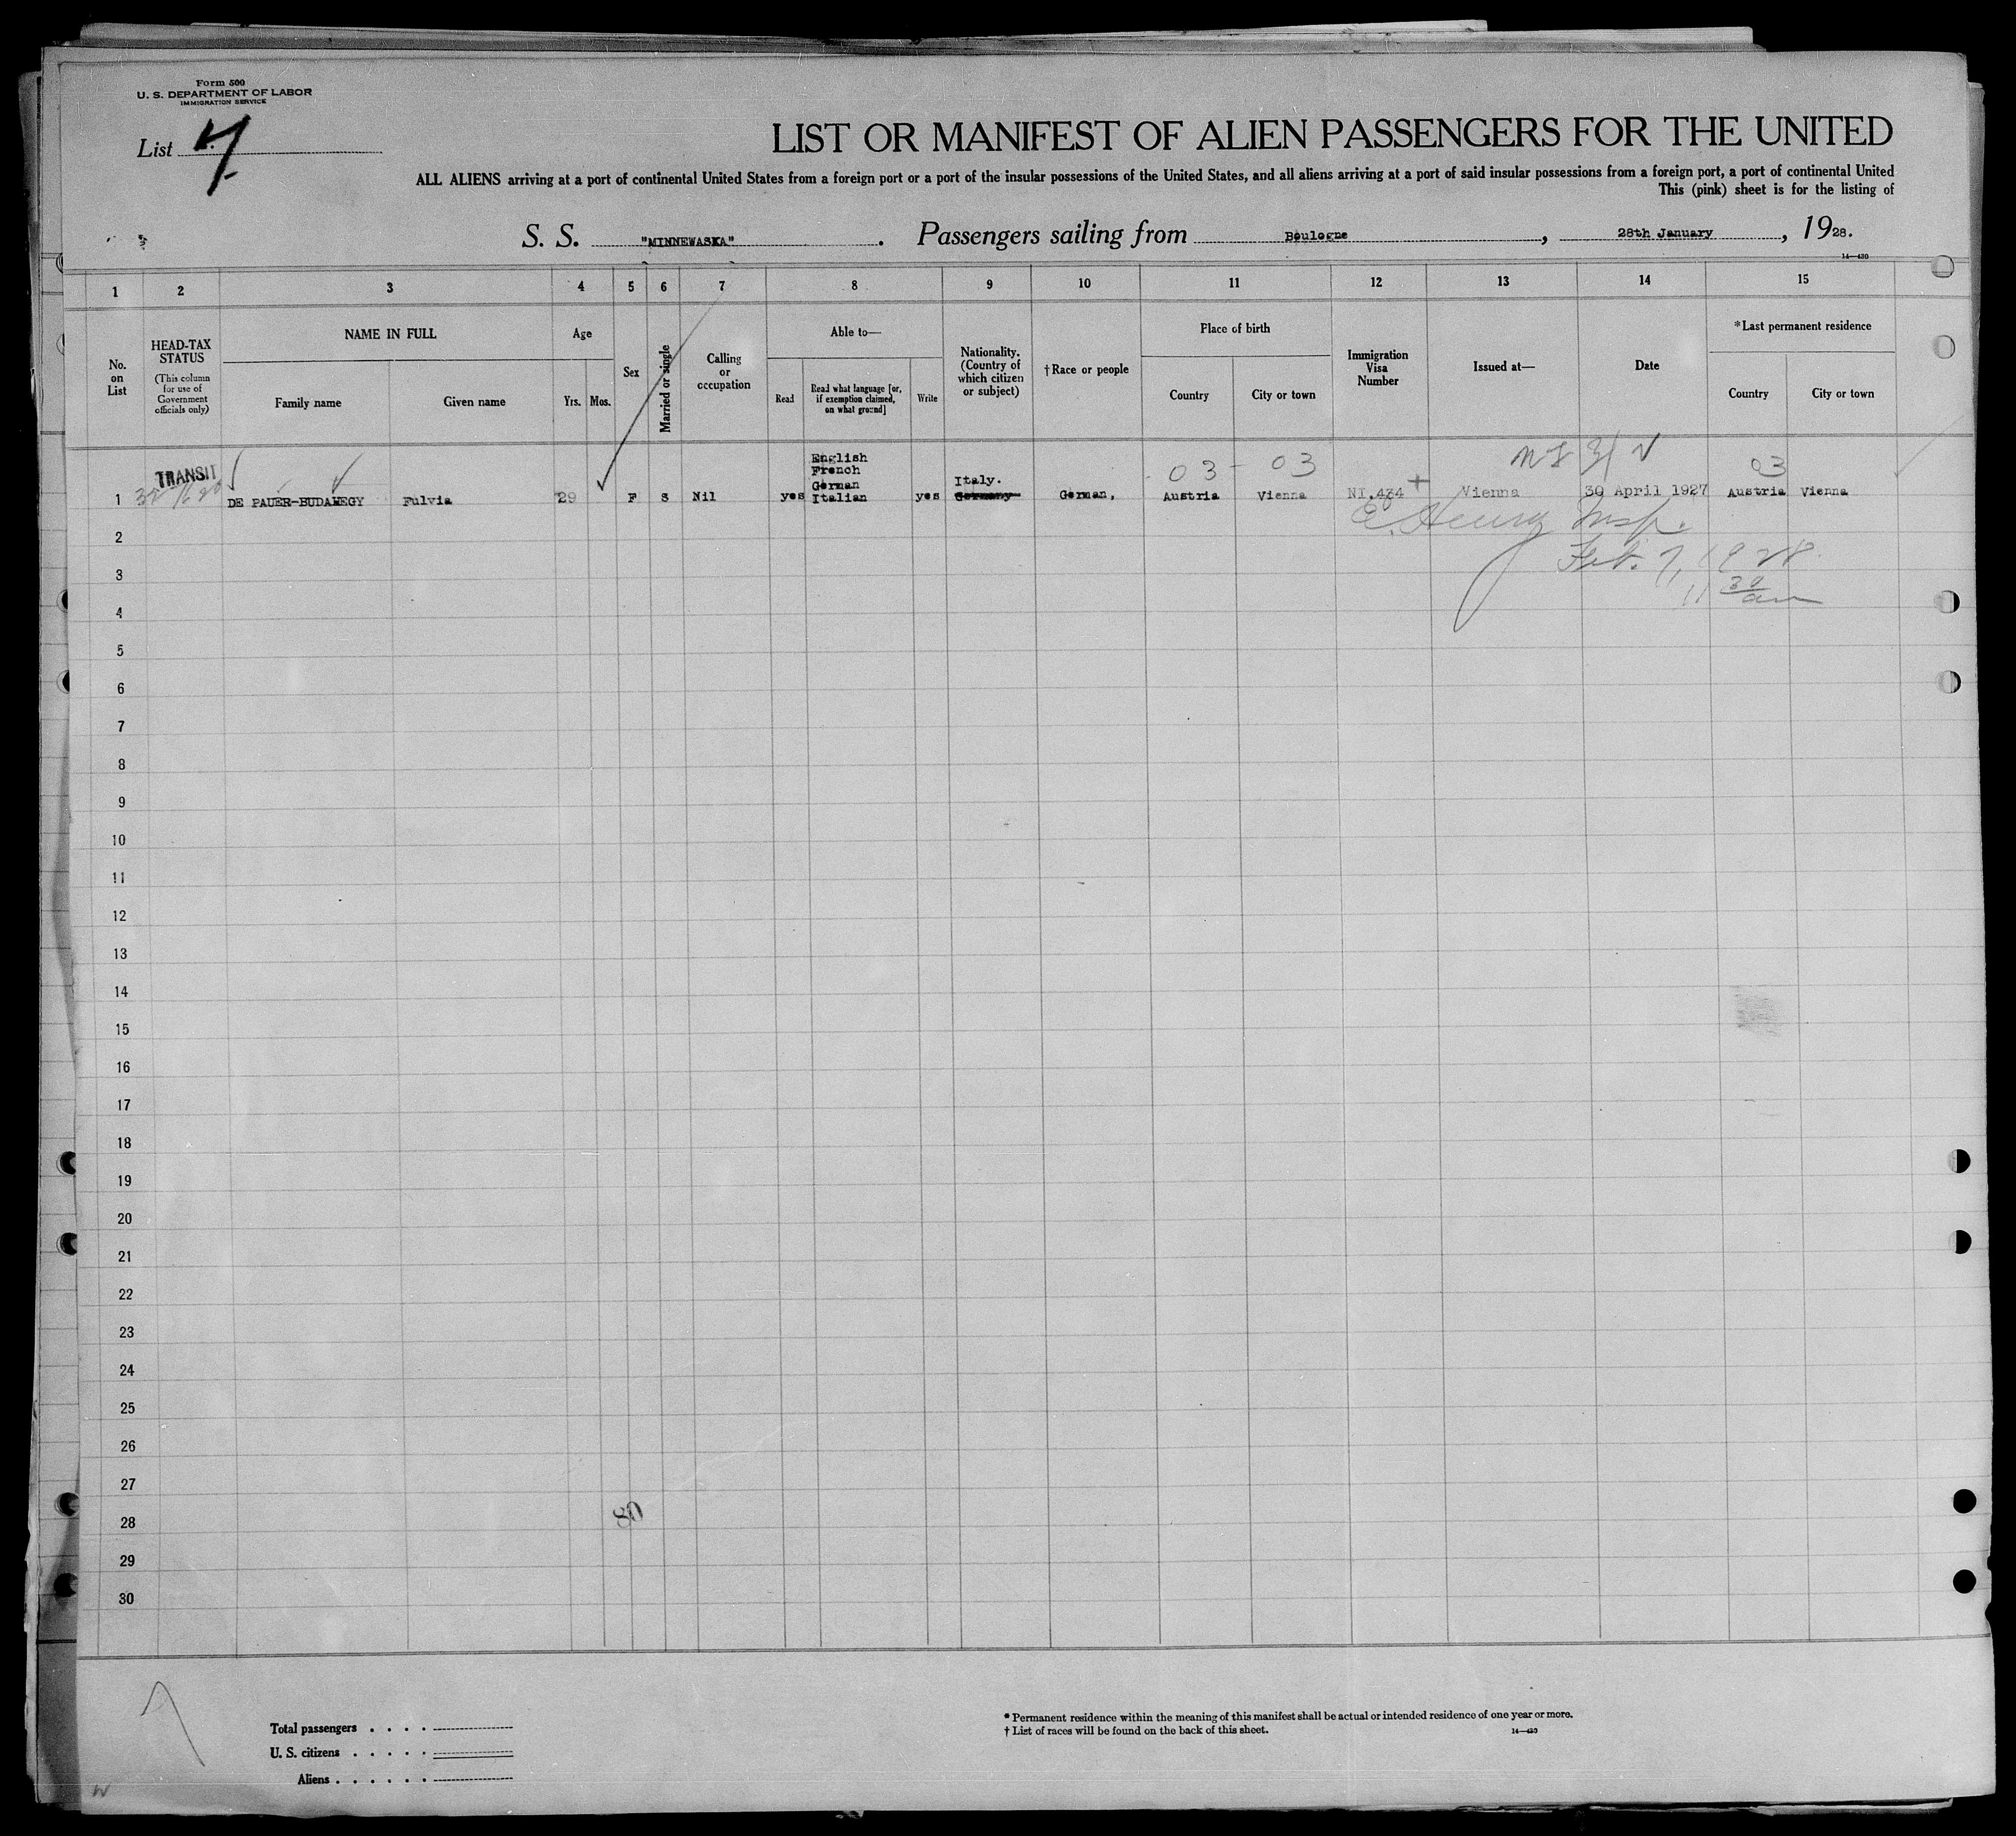 Form 500
U. S. DEPARTMENT OF LABOR
IMMIGRATION SERVICE
List 7
LIST OR MANIFEST OF ALIEN PASSENGERS FOR THE UNITED
ALL ALIENS arriving at a port of continental United States from a foreign port or a port of the insular possessions of the United States, and all aliens arriving at a port of said insular possessions from a foreign port, a port of continental United
This (pink) sheet is for the listing of
S. S. "MINNEWASKA". Passengers sailing from Boulogne, 28th January, 1928.
14—430
1 2 3 4 5 6 7 8 9 10 11 12 13 14 15
No. on List
HEAD-TAX STATUS
(This column for use of Government officials only)
NAME IN FULL
Family name
Given name
Age
Yrs. Mos.
Sex
Married or single
Calling or occupation
Able to—
Read
Read what language [or, if exemption claimed, on what ground]
Write
Nationality. (Country of which citizen or subject)
†Race or people
Place of birth
Country
City or town
Immigration Visa Number
Issued at—
Date
*Last permanent residence
Country
City or town
03 - 03
03
TRANSIT
English
French
German
1 DE PAUER-BUDAHEGY Fulvia 29 F S Nil yes Italian yes Italy. Germany German, Austria Vienna NI.434 Vienna 30 April 1927 Austria Vienna
2
E. Henry Insp.
3
Feb. 7, 1928
11 30 am
4
5
6
7
8
9
10
11
12
13
14
15
16
17
18
19
20
21
22
23
24
25
26
27
28
80
29
30
Total passengers . . . .
U. S. citizens . . . . .
Aliens . . . . . .
* Permanent residence within the meaning of this manifest shall be actual or intended residence of one year or more.
† List of races will be found on the back of this sheet.
14—430